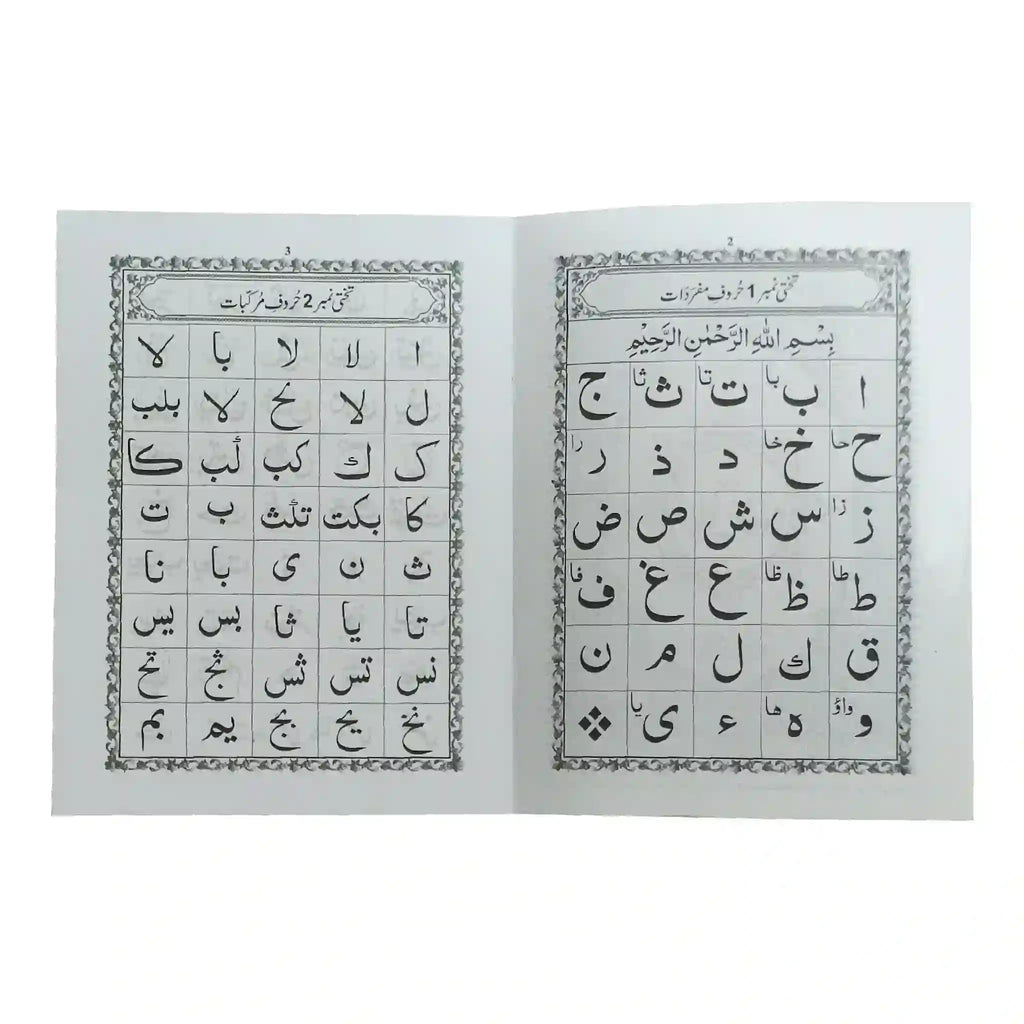 2
تختی نمبر 1 حُروفِ مفرَدَات
بِسْمِ اللهِ الرَّحْمٰنِ الرَّحِيْمِ
ا ب با ت تا ث ثا ج
ح حا خ خا د ذ ر را
ز زا س ش ص ض
ط طا ظ ظا ع غ ف فا
ق ك ل م ن
و واؤ ه ها ء ی یا
3
تختی نمبر 2 حُروفِ مُرکّبات
ا لا لا با لا
ل لا لح لا بلب
ک ك کب لب کا
کا بکت تثث ب ت
ث ن ی با نا
تا یا ثا بس یس
نس تس ثس ثج تح
نخ یح بج یم بم